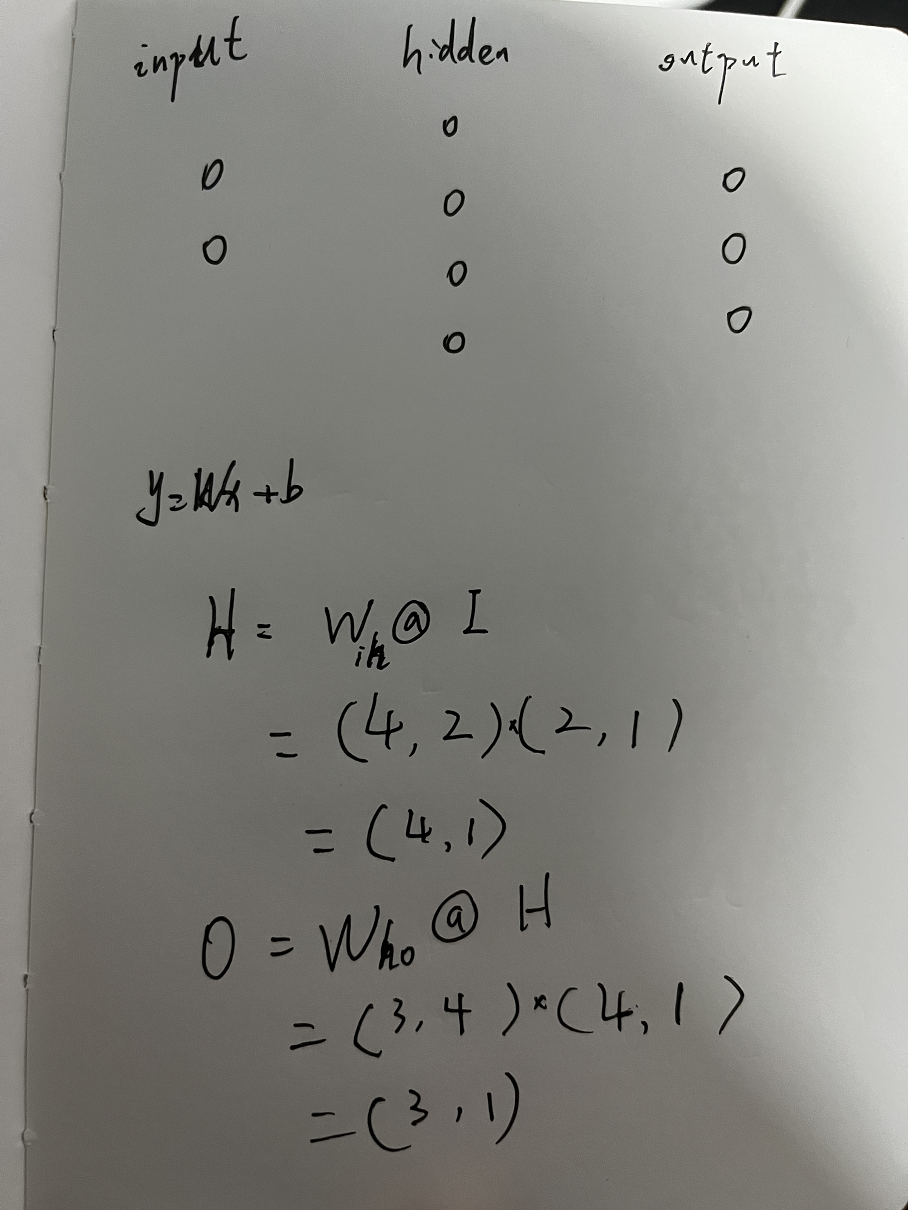 input hidden output
y=Wx+b
H = W_ih @ I
= (4, 2)×(2, 1)
= (4, 1)
O = W_ho @ H
= (3, 4)×(4, 1)
= (3, 1)